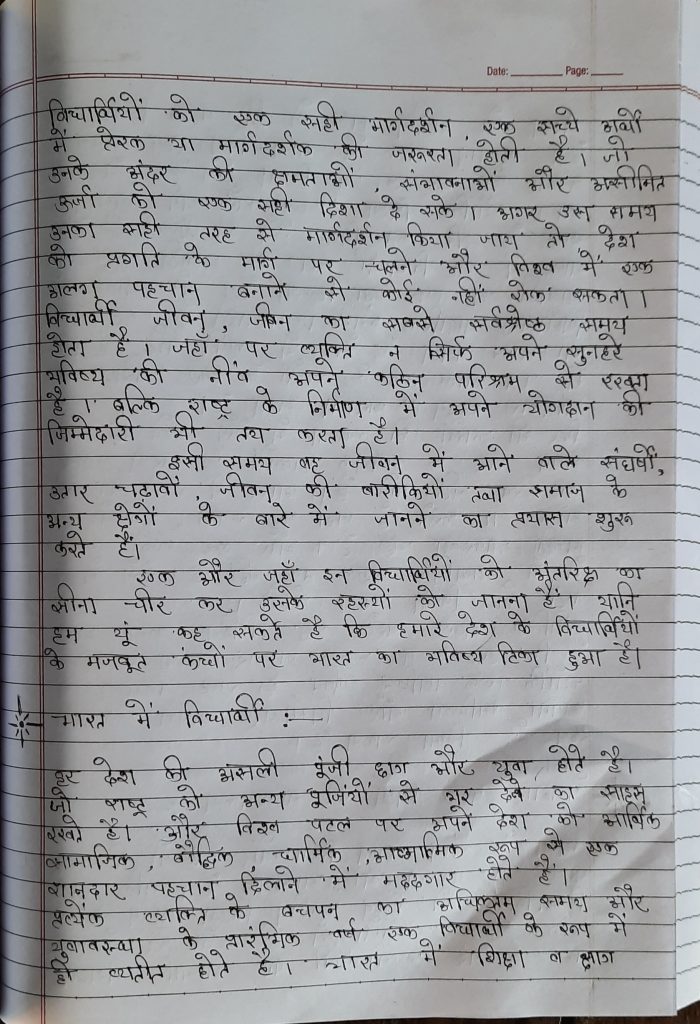 Date: ________ Page: ______
विद्यार्थियों को एक सही मार्गदर्शन, एक सच्चे अर्थों
में प्रेरक या मार्गदर्शक की जरूरत होती है। जो
उनके अंदर की क्षमताओं, संभावनाओं और असीमित
ऊर्जा को एक सही दिशा दे सके। अगर उस समय
उनका सही तरह से मार्गदर्शन किया जाय तो देश
को प्रगति के मार्ग पर चलने और विश्व में एक
अलग पहचान बनाने से कोई नहीं रोक सकता।
विद्यार्थी जीवन, जीवन का सबसे सर्वश्रेष्ठ समय
होता है। जहाँ पर व्यक्ति न सिर्फ अपने सुनहरे
भविष्य की नींव अपने कठिन परिश्रम से रखता
है। बल्कि राष्ट्र के निर्माण में अपने योगदान की
जिम्मेदारी भी तय करता है।
इसी समय वह जीवन में आने वाले संघर्षों,
उतार चढ़ावों, जीवन की बारीकियों तथा समाज के
अन्य लोगों के बारे में जानने का प्रयास शुरू
करते हैं।
एक और जहाँ इन विद्यार्थियों को अंतरिक्ष का
सीना चीर कर उसके रहस्यों को जानना है। यानि
हम यूं कह सकते है कि हमारे देश के विद्यार्थियों
के मजबूत कंधों पर भारत का भविष्य टिका हुआ है।
भारत में विद्यार्थी :—
हर देश की असली पूंजी छात्र और युवा होते है।
जो राष्ट्र को अन्य पूंजियों से भर देने का साहस
रखते है। और विश्व पटल पर अपने देश को आर्थिक
सामाजिक, बौद्धिक, धार्मिक, आध्यात्मिक रूप से एक
शानदार पहचान दिलाने में मददगार होते हैं।
प्रत्येक व्यक्ति के बचपन का अधिकतम समय और
युवावस्था के प्रारंभिक वर्ष एक विद्यार्थी के रूप में
ही व्यतीत होते है। भारत में शिक्षा व छात्र